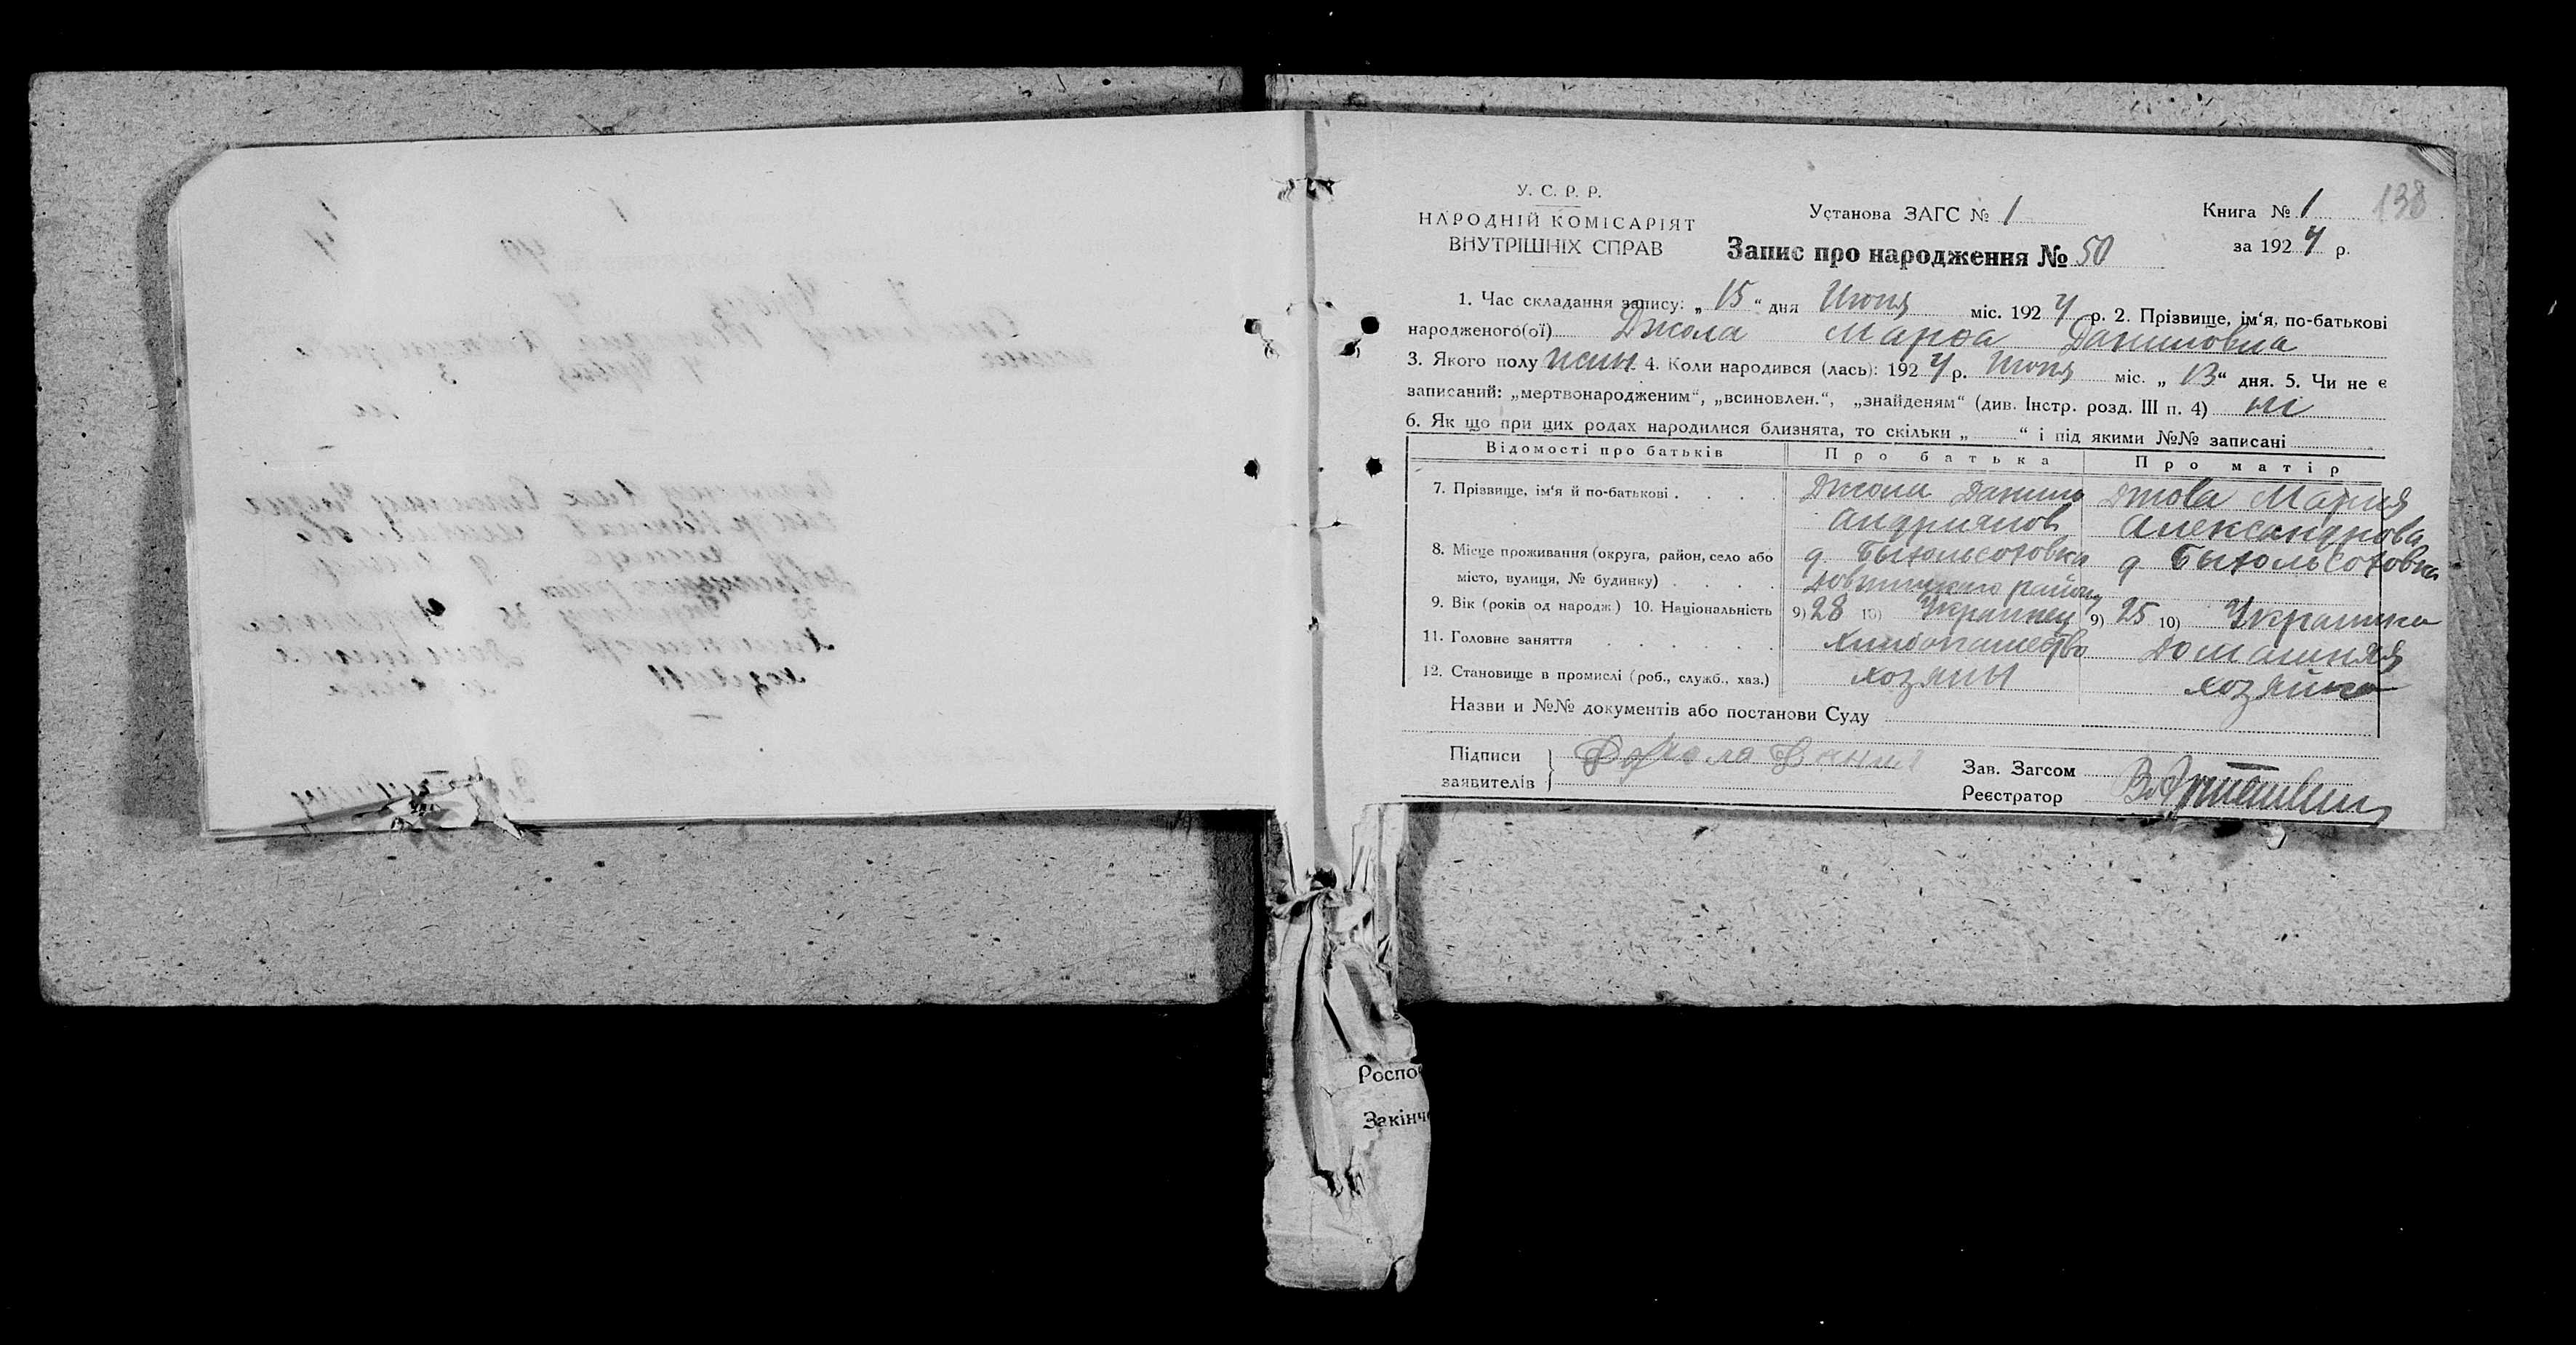 138
У. С. Р. Р.
НАРОДНІЙ КОМІСАРІЯТ
ВНУТРІШНІХ СПРАВ
Установа ЗАГС № 1
Книга № 1
Запис про народження № 50
за 1924 р.
1. Час складання запису: „15“ дня Июня міс. 1924 р. 2. Прізвище, ім‘я, по-батькові
народженого(ої) Джола Марфа Даниловна
3. Якого полу жен. 4. Коли народився (лась): 1924 р. Июня міс. „13“ дня. 5. Чи не є
записаний: „мертвонародженим“, „всиновлен.“, „знайденям“ (див. Інстр. розд. III п. 4) не
6. Як що при цих родах народилися близнята, то скільки „ “ і під якими №№ записані
Відомості про батьків Про батька Про матір
7. Прізвище, ім‘я й по-батькові Джола Данило Джова Мария
Андрианов Александрова
8. Місце проживання (округа, район, село або д д
місто, вулиця, № будинку) району
9. Вік (років од народж) 10. Національність 9) 28 10) Украинец 9) 25 10) Украинка
11. Головне заняття Хлибопашество Домашняя
12. Становище в промислі (роб., служб., хаз.) хозяин хозяйка
Назви и №№ документів або постанови Суду
Підписи
заявителів } Джола Данил
Зав. Загсом
Реєстратор
Роспо
Закінч